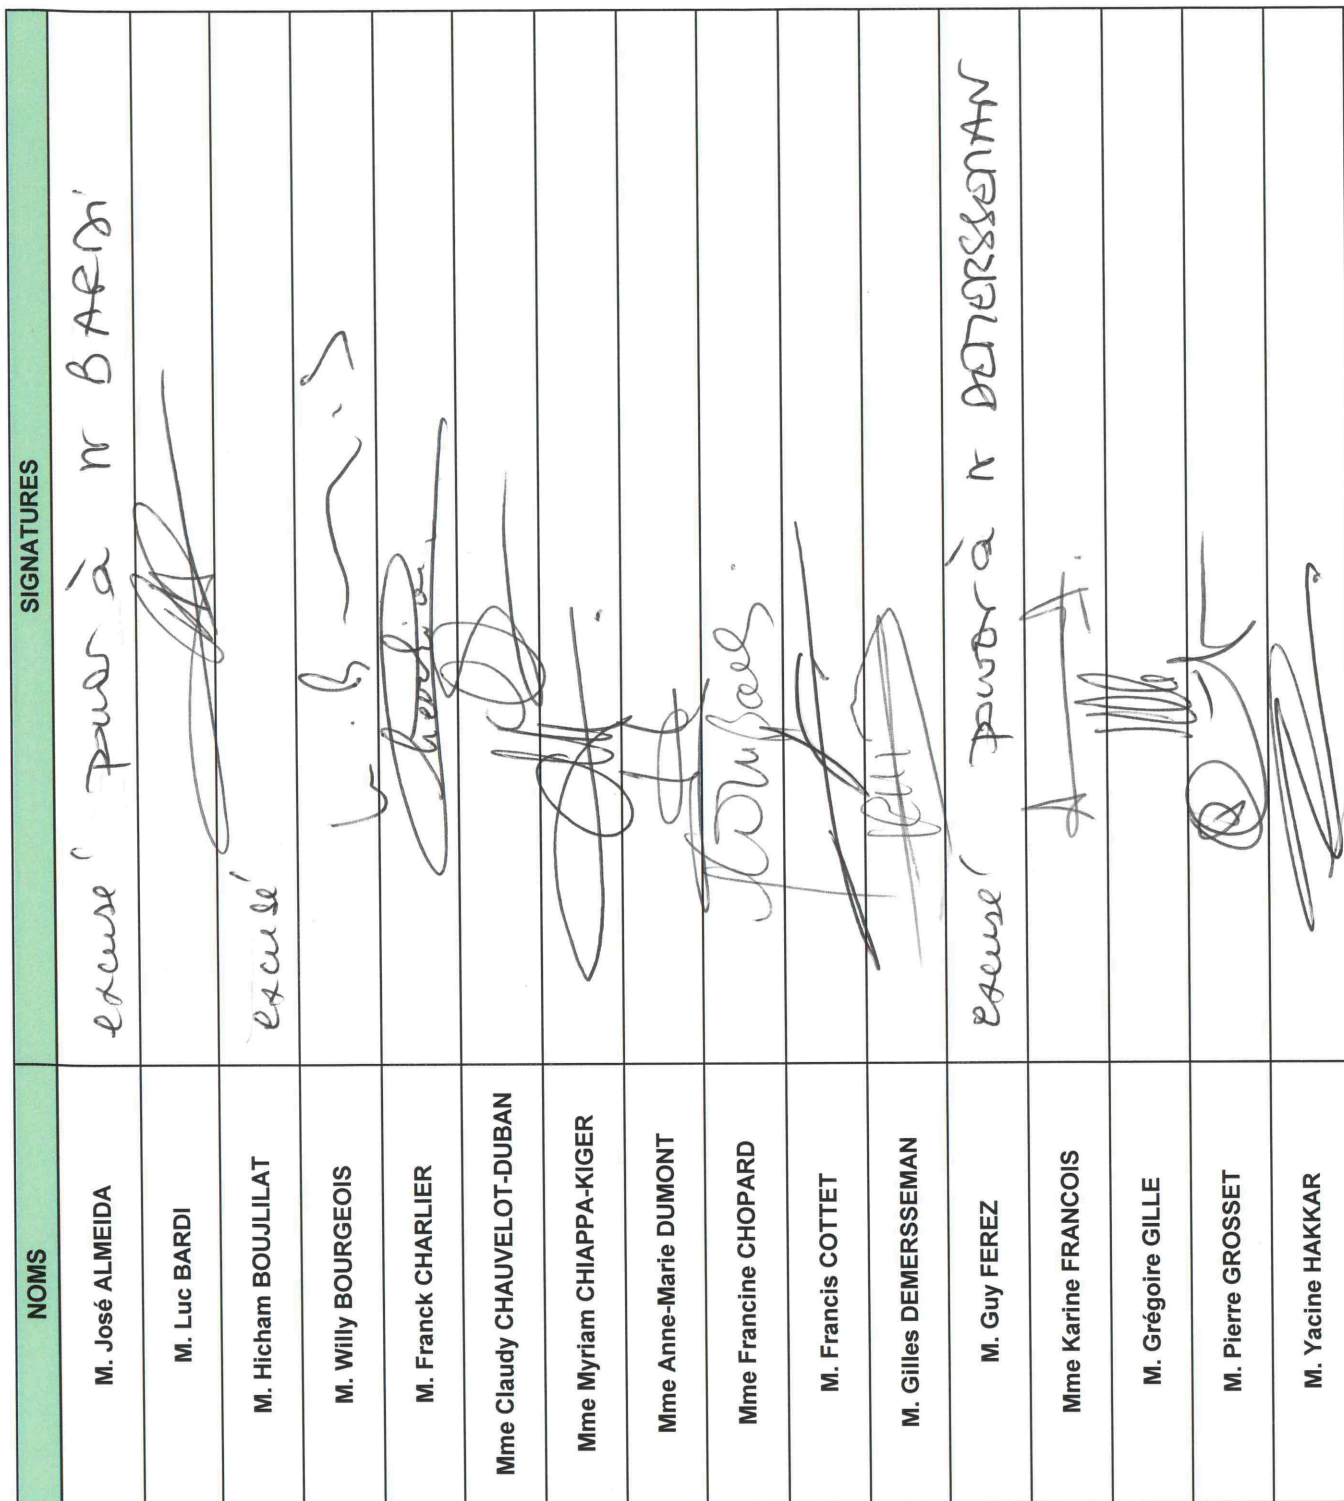 NOMS SIGNATURES
M. José ALMEIDA excusé pouvoir à Mr BARDI
M. Luc BARDI
M. Hicham BOUJLILAT excusé
M. Willy BOURGEOIS
M. Franck CHARLIER
Mme Claudy CHAUVELOT-DUBAN
Mme Myriam CHIAPPA-KIGER
Mme Anne-Marie DUMONT
Mme Francine CHOPARD
M. Francis COTTET
M. Gilles DEMERSSEMAN
M. Guy FEREZ excusé pouvoir à Mr DEMERSSEMAN
Mme Karine FRANCOIS
M. Grégoire GILLE
M. Pierre GROSSET
M. Yacine HAKKAR